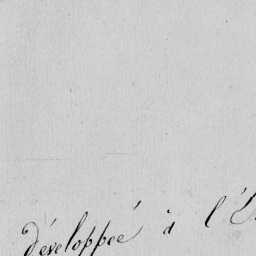 développée à l'